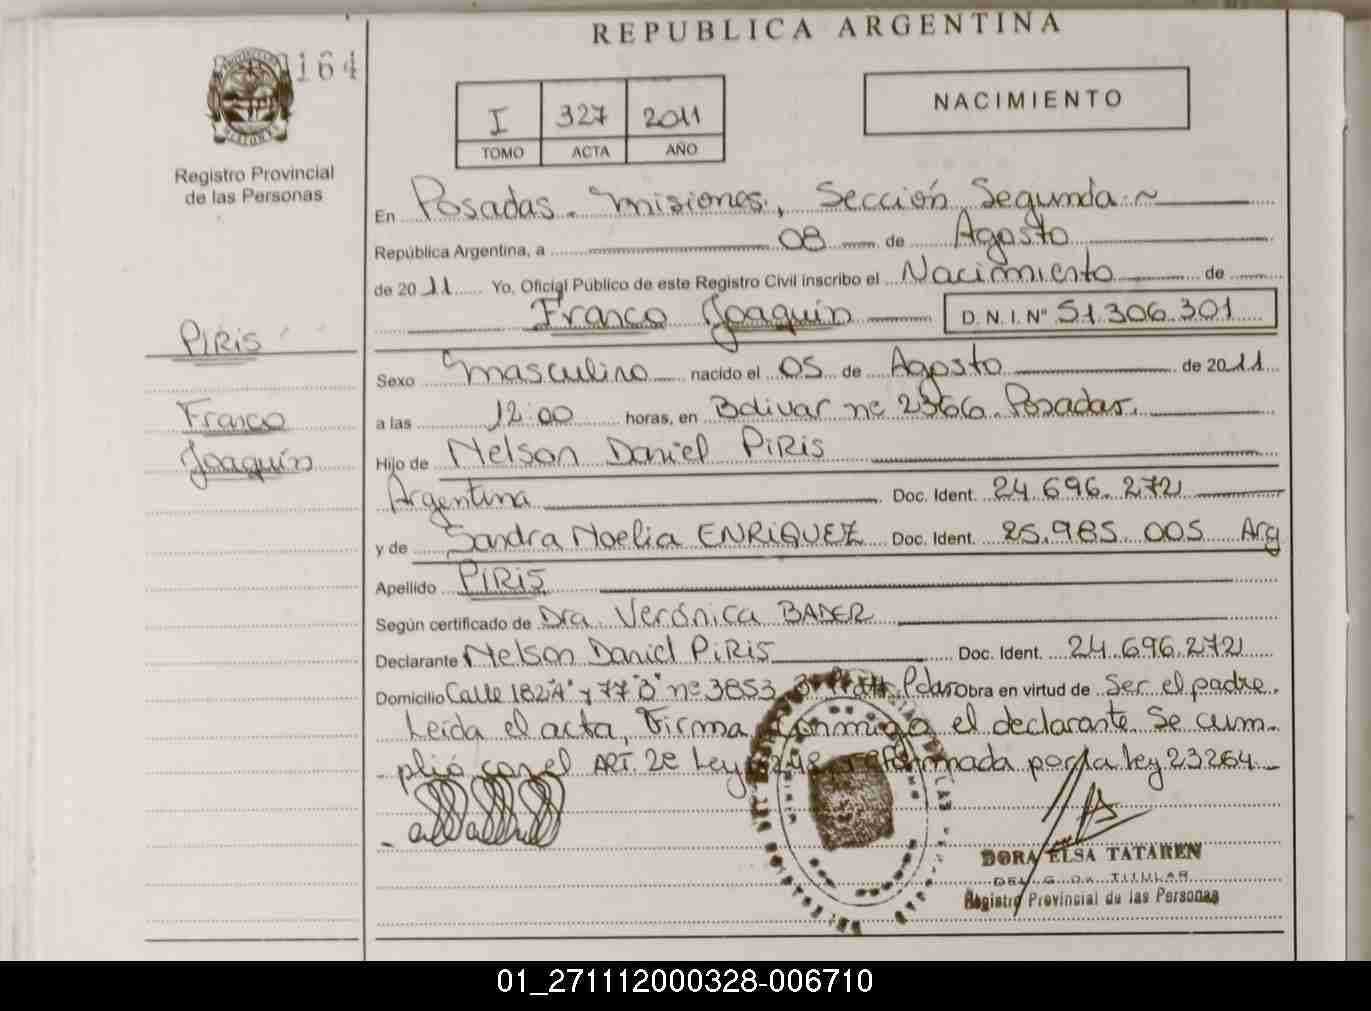 REPUBLICA ARGENTINA
164
I 327 2011
TOMO ACTA AÑO
NACIMIENTO
Registro Provincial
de las Personas
En Posadas. Misiones, Sección Segunda
República Argentina, a 08 de Agosto
de 2011 Yo, Oficial Público de este Registro Civil inscribo el Nacimiento de
Franco Joaquín D.N.I. Nº 51.306.301
PIRIS
Franco
Joaquín
Sexo Masculino nacido el 05 de Agosto de 2011
a las 12:00 horas, en Bolivar nº 2366. Posadas.
Hijo de Nelson Daniel PIRIS
Argentina Doc. Ident. 24.696.272
y de Sandra Noelia ENRIQUEZ Doc. Ident. 25.985.005 Arg
Apellido PIRIS
Según certificado de Dra. Verónica BADER
Declarante Nelson Daniel PIRIS Doc. Ident. 24.696.272
Domicilio Calle 182"A" y 77"B" nº 3853 Obra en virtud de Ser el padre.
Leída el acta, Firma conmigo el declarante Se cum-
plió con el ART. 2º Ley reformada por la ley 23264
DORA ELSA TATAREN
TITULAR
Registro Provincial de las Personas
01_271112000328-006710